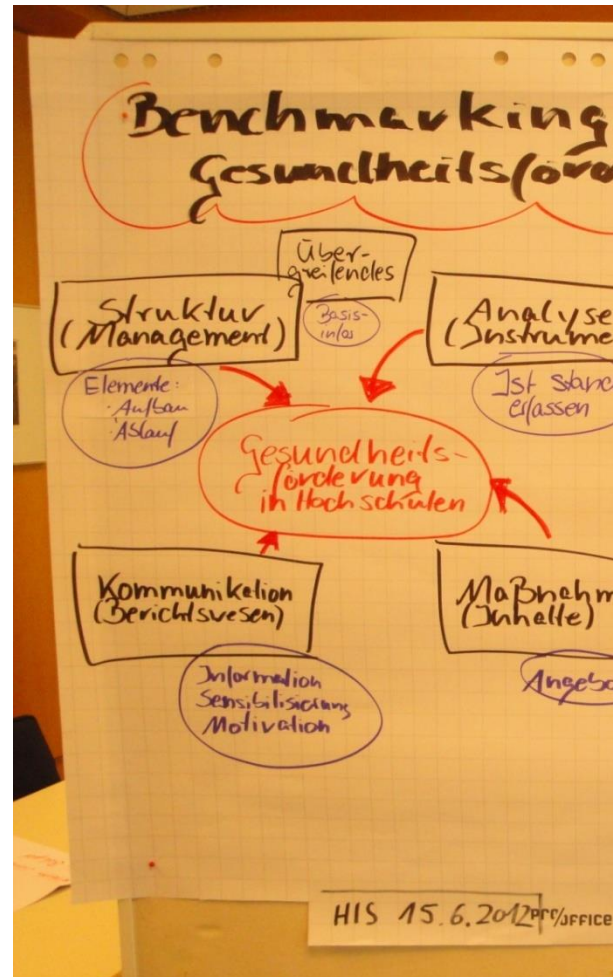 Benchmarking
Gesundheitsförd
Über-
greifendes
Basis-
infos
Struktur
(Management)
Elemente:
· Aufbau
· Ablauf
Analyse
(Instrume
Ist stand
erfassen
Gesundheits-
förderung
in Hochschulen
Kommunikation
(Berichtswesen)
Information
Sensibilisierung
Motivation
Maßnahm
(Inhalte)
Angebo
HIS 15.6.2012
OFFICE